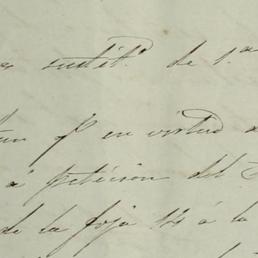 sustit.º de 1.ª
q.e en virtud
a peticion del
de la foja 14 á la